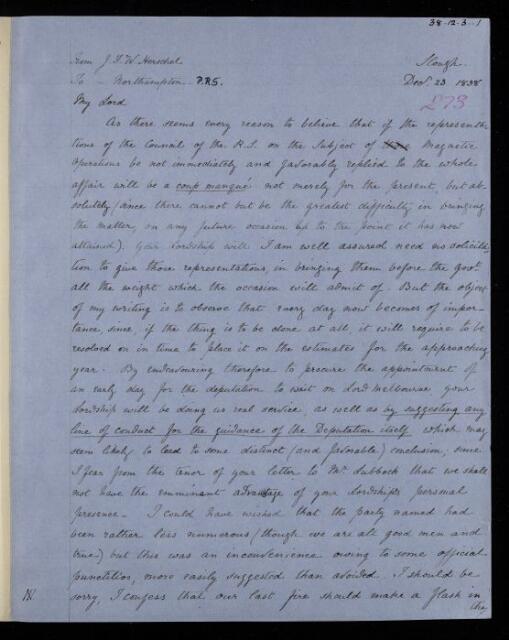 38-12-3-1
From J. F. W. Herschel
Slough.
To - Northampton P.R.S.
Decr. 23 1838
£73
My Lord
As there seems every reason to believe that if the representa-
tions of the Council of the R.S. on the Subject of Magnetic
Operations be not immediately and favorably replied to the whole
affair will be a coup manqué not merely for the present, but ab-
solutely (since there cannot but be the greatest difficulty in bringing
the matter, on any future occasion up to the point it has now
attained). Your Lordship will I am well assured need no solicita-
tion to give those representations, in bringing them before the Govt.
all the weight which the occasion will admit of. But the object
of my writing is to observe that every day now becomes of impor-
tance, since, if the thing is to be done at all, it will require to be
resolved on in time to place it on the estimates for the approaching
year. By endeavouring therefore to procure the appointment of
an early day for the deputation to wait on Lord Melbourne your
Lordship will be doing us real service, as well as by suggesting any
line of conduct for the guidance of the Deputation itself which may
seem likely to lead to some distinct (and favorable) conclusion, since
I fear from the tenor of your letter to Mr. Lubbock that we shall
not have the emminant advantage of your Lordships personal
presence. - I could have wished that the party named had
been rather less numerous (though we are all good men and
true) but this was an inconvenience owing to some official
punctilios, more easily suggested than avoided. I should be
sorry, I confess that our last fire should make a flash in
the